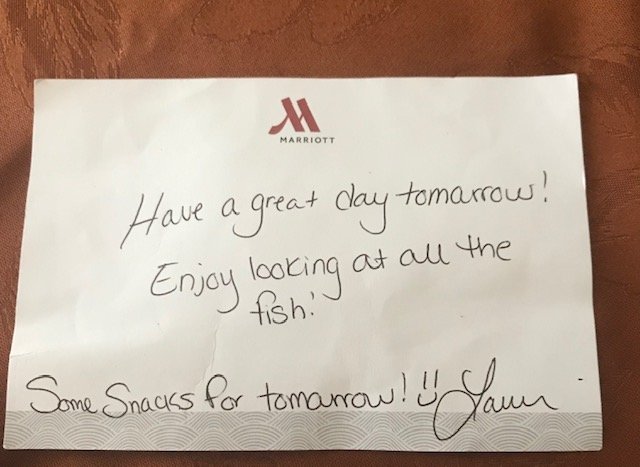 MARRIOTT
Have a great day tomarrow!
Enjoy looking at all the
fish!
Some Snacks for tomarrow!